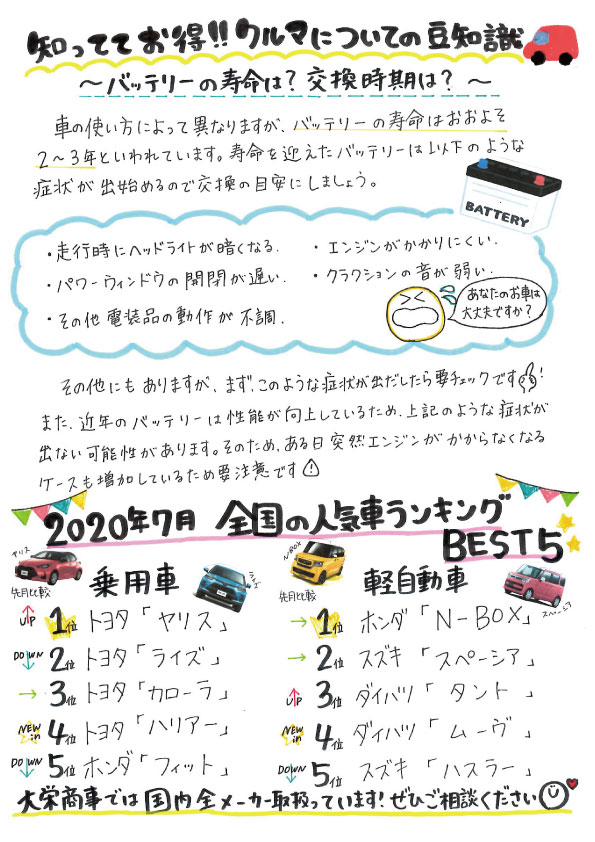 知ってて お得!! クルマについての豆知識
～バッテリーの寿命は? 交換時期は? ～
車の使い方によって異なりますが、バッテリーの寿命はおおよそ
2～3年といわれています。寿命を迎えたバッテリーは以下のような
症状が出始めるので交換の目安にしましょう。
BATTERY
・走行時にヘッドライトが暗くなる.
・エンジンがかかりにくい.
・パワーウィンドウの開閉が遅い.
・クラクションの音が弱い.
・その他電装品の動作が不調.
あなたのお車は
大丈夫ですか?
その他にもありますが、まず、このような症状が出だしたら要チェックです!
また、近年のバッテリーは性能が向上しているため、上記のような症状が
出ない可能性があります。そのため、ある日突然エンジンがかからなくなる
ケースも増加しているため要注意です
2020年7月 全国の人気車ランキング
BEST5
ヤリス
先月比較
乗用車
ライズ
UP 1位 トヨタ「ヤリス」
DOWN 2位 トヨタ「ライズ」
→ 3位 トヨタ「カローラ」
NEW in 4位 トヨタ「ハリアー」
DOWN 5位 ホンダ「フィット」
N-BOX
先月比較
軽自動車
スペーシア
→ 1位 ホンダ「N-BOX」
→ 2位 スズキ「スペーシア」
UP 3位 ダイハツ「タント」
NEW in 4位 ダイハツ「ムーヴ」
DOWN 5位 スズキ「ハスラー」
大栄商事では国内全メーカー取扱っています! ぜひご相談ください